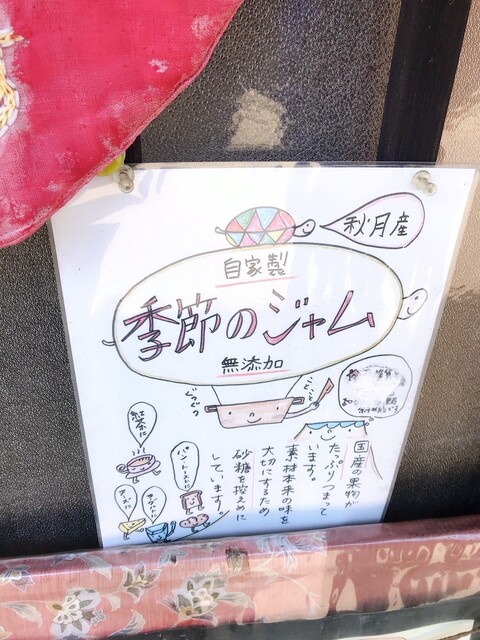 秋月産
自家製
季節のジャム
無添加
ぐつぐつ
ことこと
国産の果物が
たっぷりつまって
います。
素材本来の味を
大切にするため
砂糖を控えめに
しています。
紅茶に
パン・トーストに
チーズに
ヨーグルトに